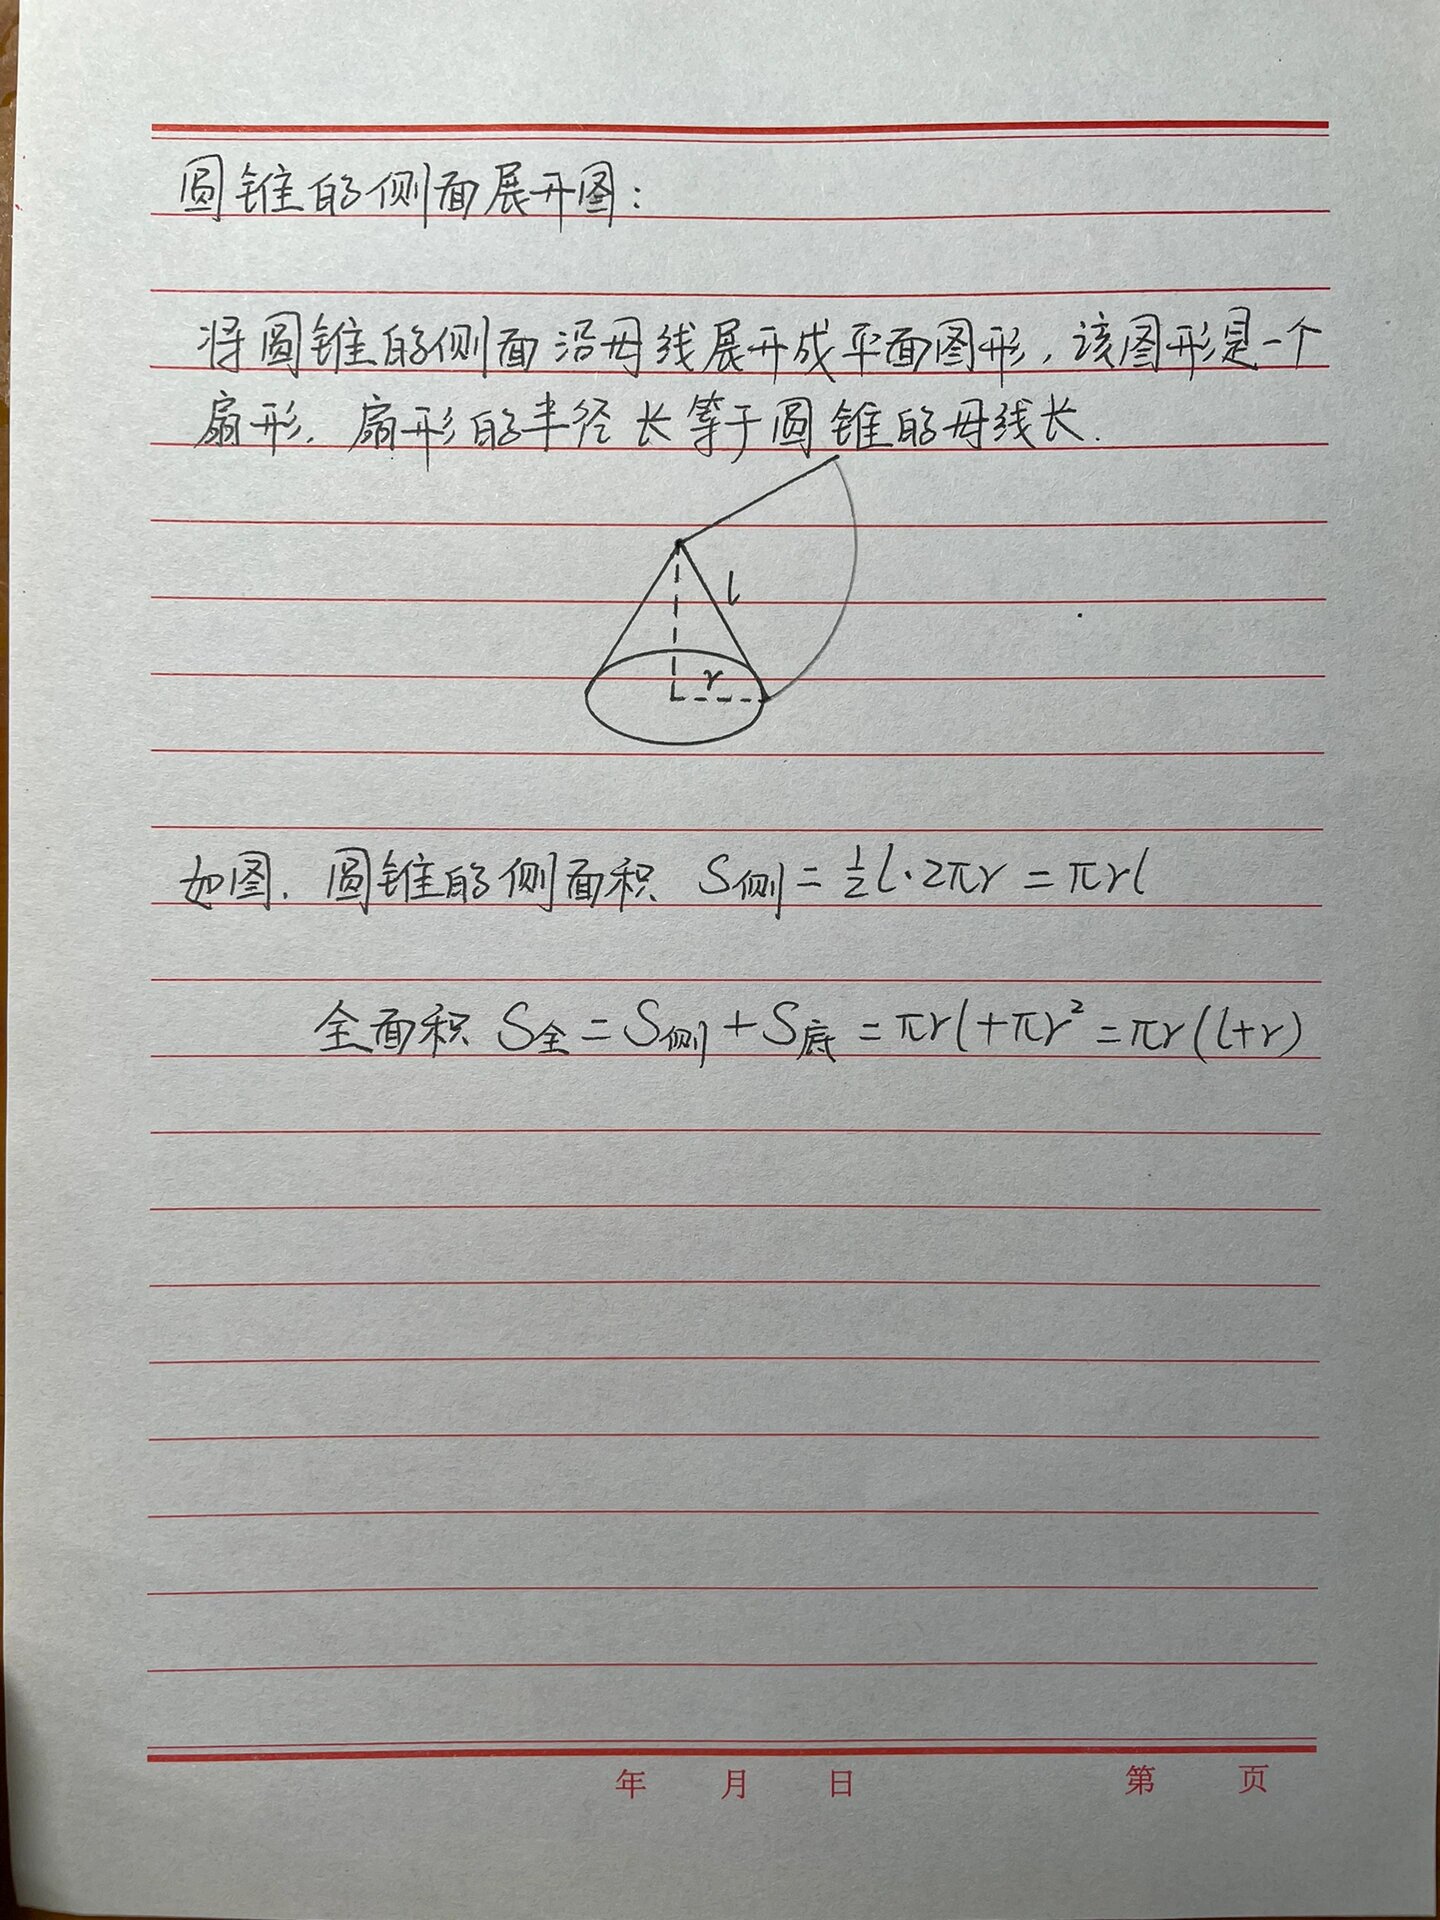 圆锥的侧面展开图：
将圆锥的侧面沿母线展开成平面图形，该图形是一个
扇形．扇形的半径长等于圆锥的母线长．
l
r
如图．圆锥的侧面积 S侧 = 1/2 l·2πr = πrl
全面积 S全 = S侧 + S底 = πrl + πr² = πr(l+r)
年 月 日 第 页